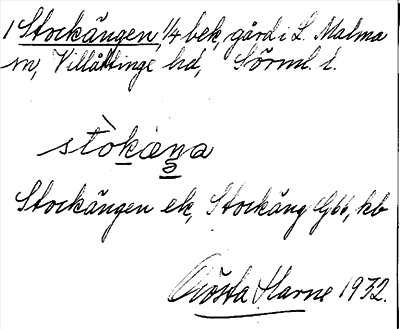 1 Stockängen, 1/4 bek, gård i L. Malma
sn, Villåttinge hd, Sörml. l.
stòkæna
Stockängen ek, Stockäng Gbb, kb
Gösta Harne 1932.